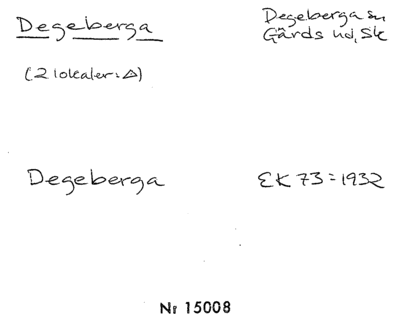 Degeberga
Degeberga sn
Gärds hd, Sk
(2 lokaler: △)
Degeberga
EK 73 = 1932
Nr 15008